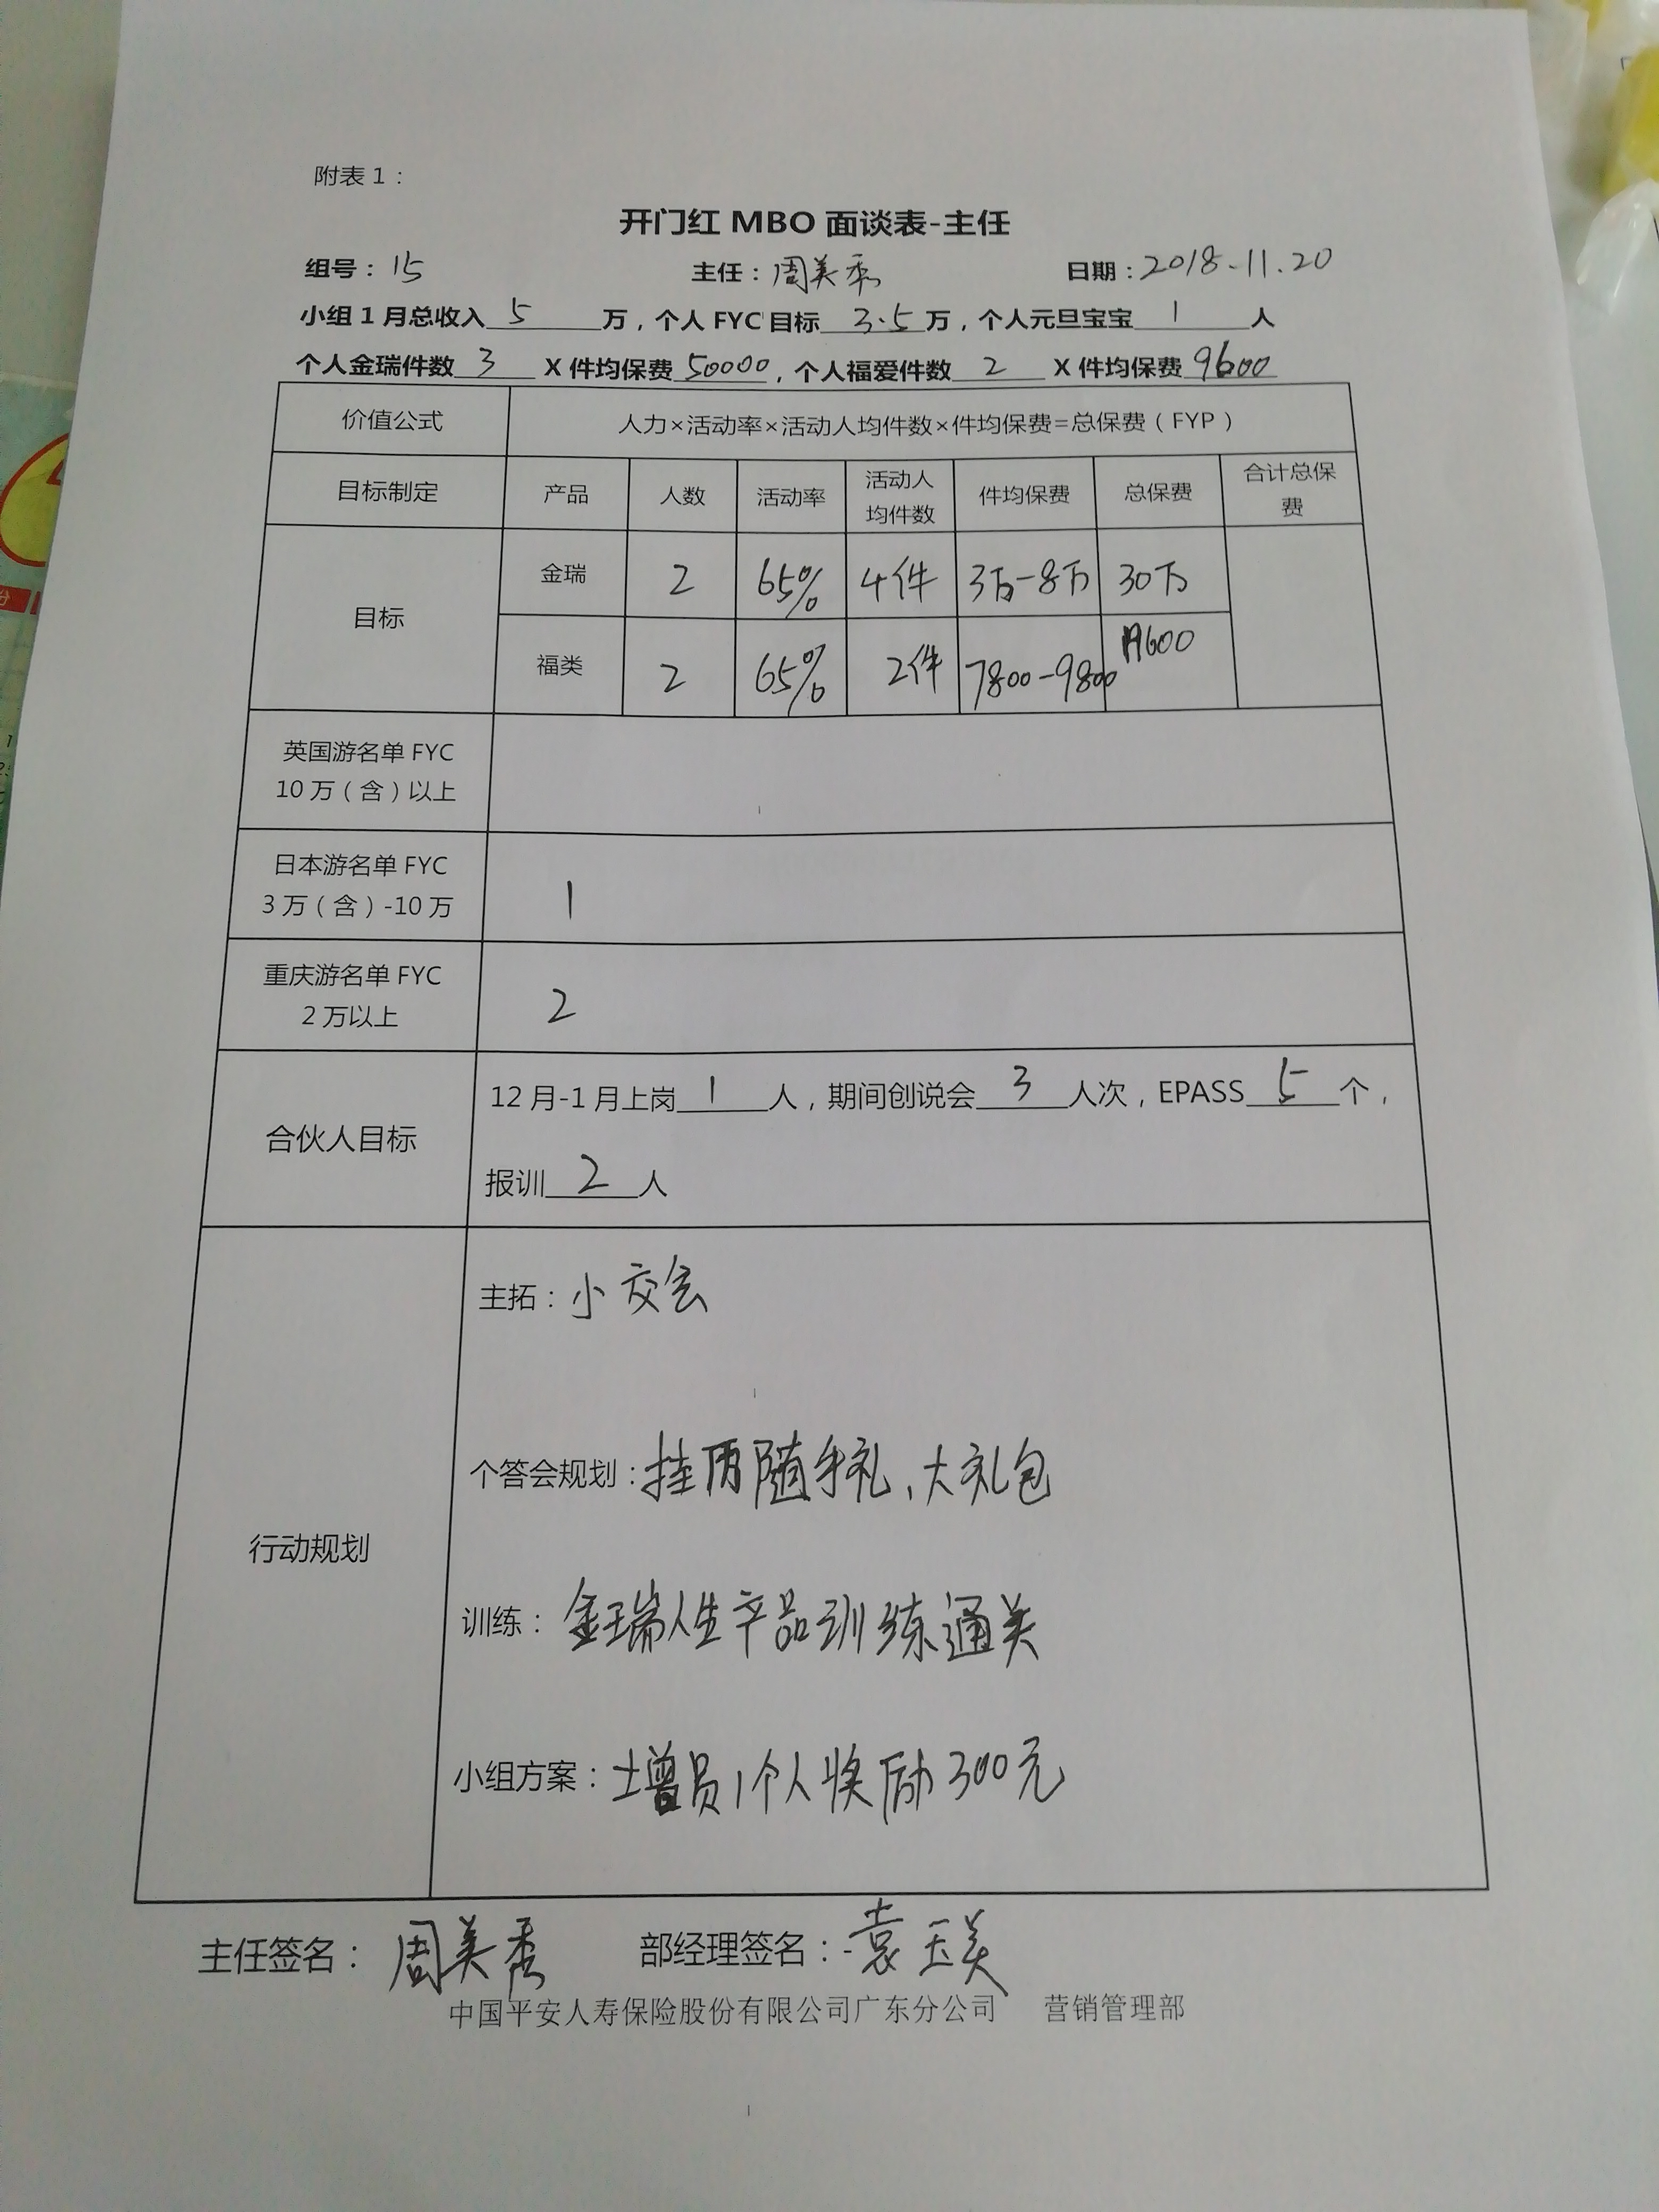 附表1：
开门红MBO面谈表-主任
组号：15 主任：周美秀 日期：2018.11.20
小组1月总收入5万，个人FYC目标3.5万，个人元旦宝宝1人
个人金瑞件数3 X件均保费50000，个人福爱件数2 X件均保费9600
价值公式 人力×活动率×活动人均件数×件均保费=总保费（FYP）
目标制定 产品 人数 活动率 活动人均件数 件均保费 总保费 合计总保费
目标 金瑞 2 65% 4件 3万-8万 30万
福类 2 65% 2件 7800-9800
英国游名单FYC
10万（含）以上
日本游名单FYC
3万（含）-10万 1
重庆游名单FYC
2万以上 2
合伙人目标 12月-1月上岗1人，期间创说会3人次，EPASS 5个，
报训2人
行动规划
主拓：小交会
个答会规划：随手礼、大礼包
训练：金瑞人生产品训练通关
小组方案：增员1个人奖励300元
主任签名：周美秀 部经理签名：袁玉美
中国平安人寿保险股份有限公司广东分公司 营销管理部